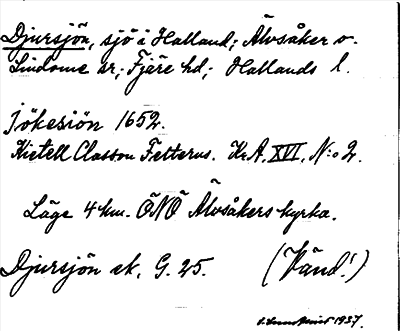 Djursjön, sjö i Halland; Älvsåker o.
Lindome sr; Fjäre hd; Hallands l.
Jökesiön 1652.
Kietell Classon Felterus. Kr.A. XVI, N:o 2.
Läge 4 km. ÖNÖ Älvsåkers kyrka.
Djursjön ek. G. 25. (Vänd!)
1937.